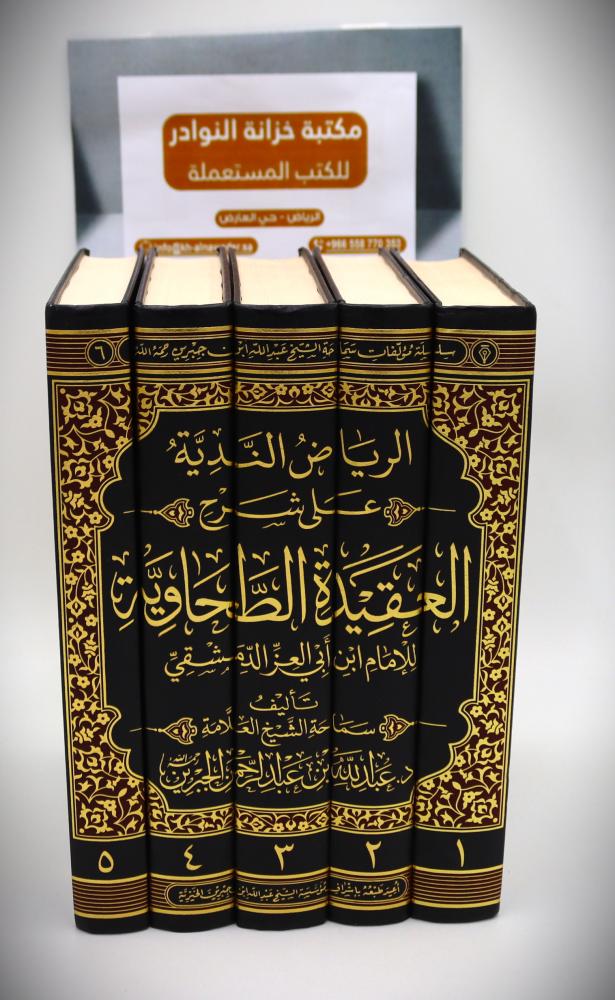 مكتبة خزانة النوادر
للكتب المستعملة
الرياض - حي العارض
info@kh-alnawader.sa
+966 558 770 353
سلسلة مؤلفات سماحة الشيخ عبد الله ابن جبرين رحمه الله
٦
الرياض النَّديَّة
على شرح
العَقِيدَةِ الطَّحَاوِيَّة
للإمام ابن أبي العز الدمشقي
تأليف
سماحة الشيخ العلَّامة
د. عبد الله بن عبد الرحمن الجبرين
١
٢
٣
٤
٥
أعيد طبعه بإشراف مؤسسة الشيخ عبد الله ابن جبرين الخيرية